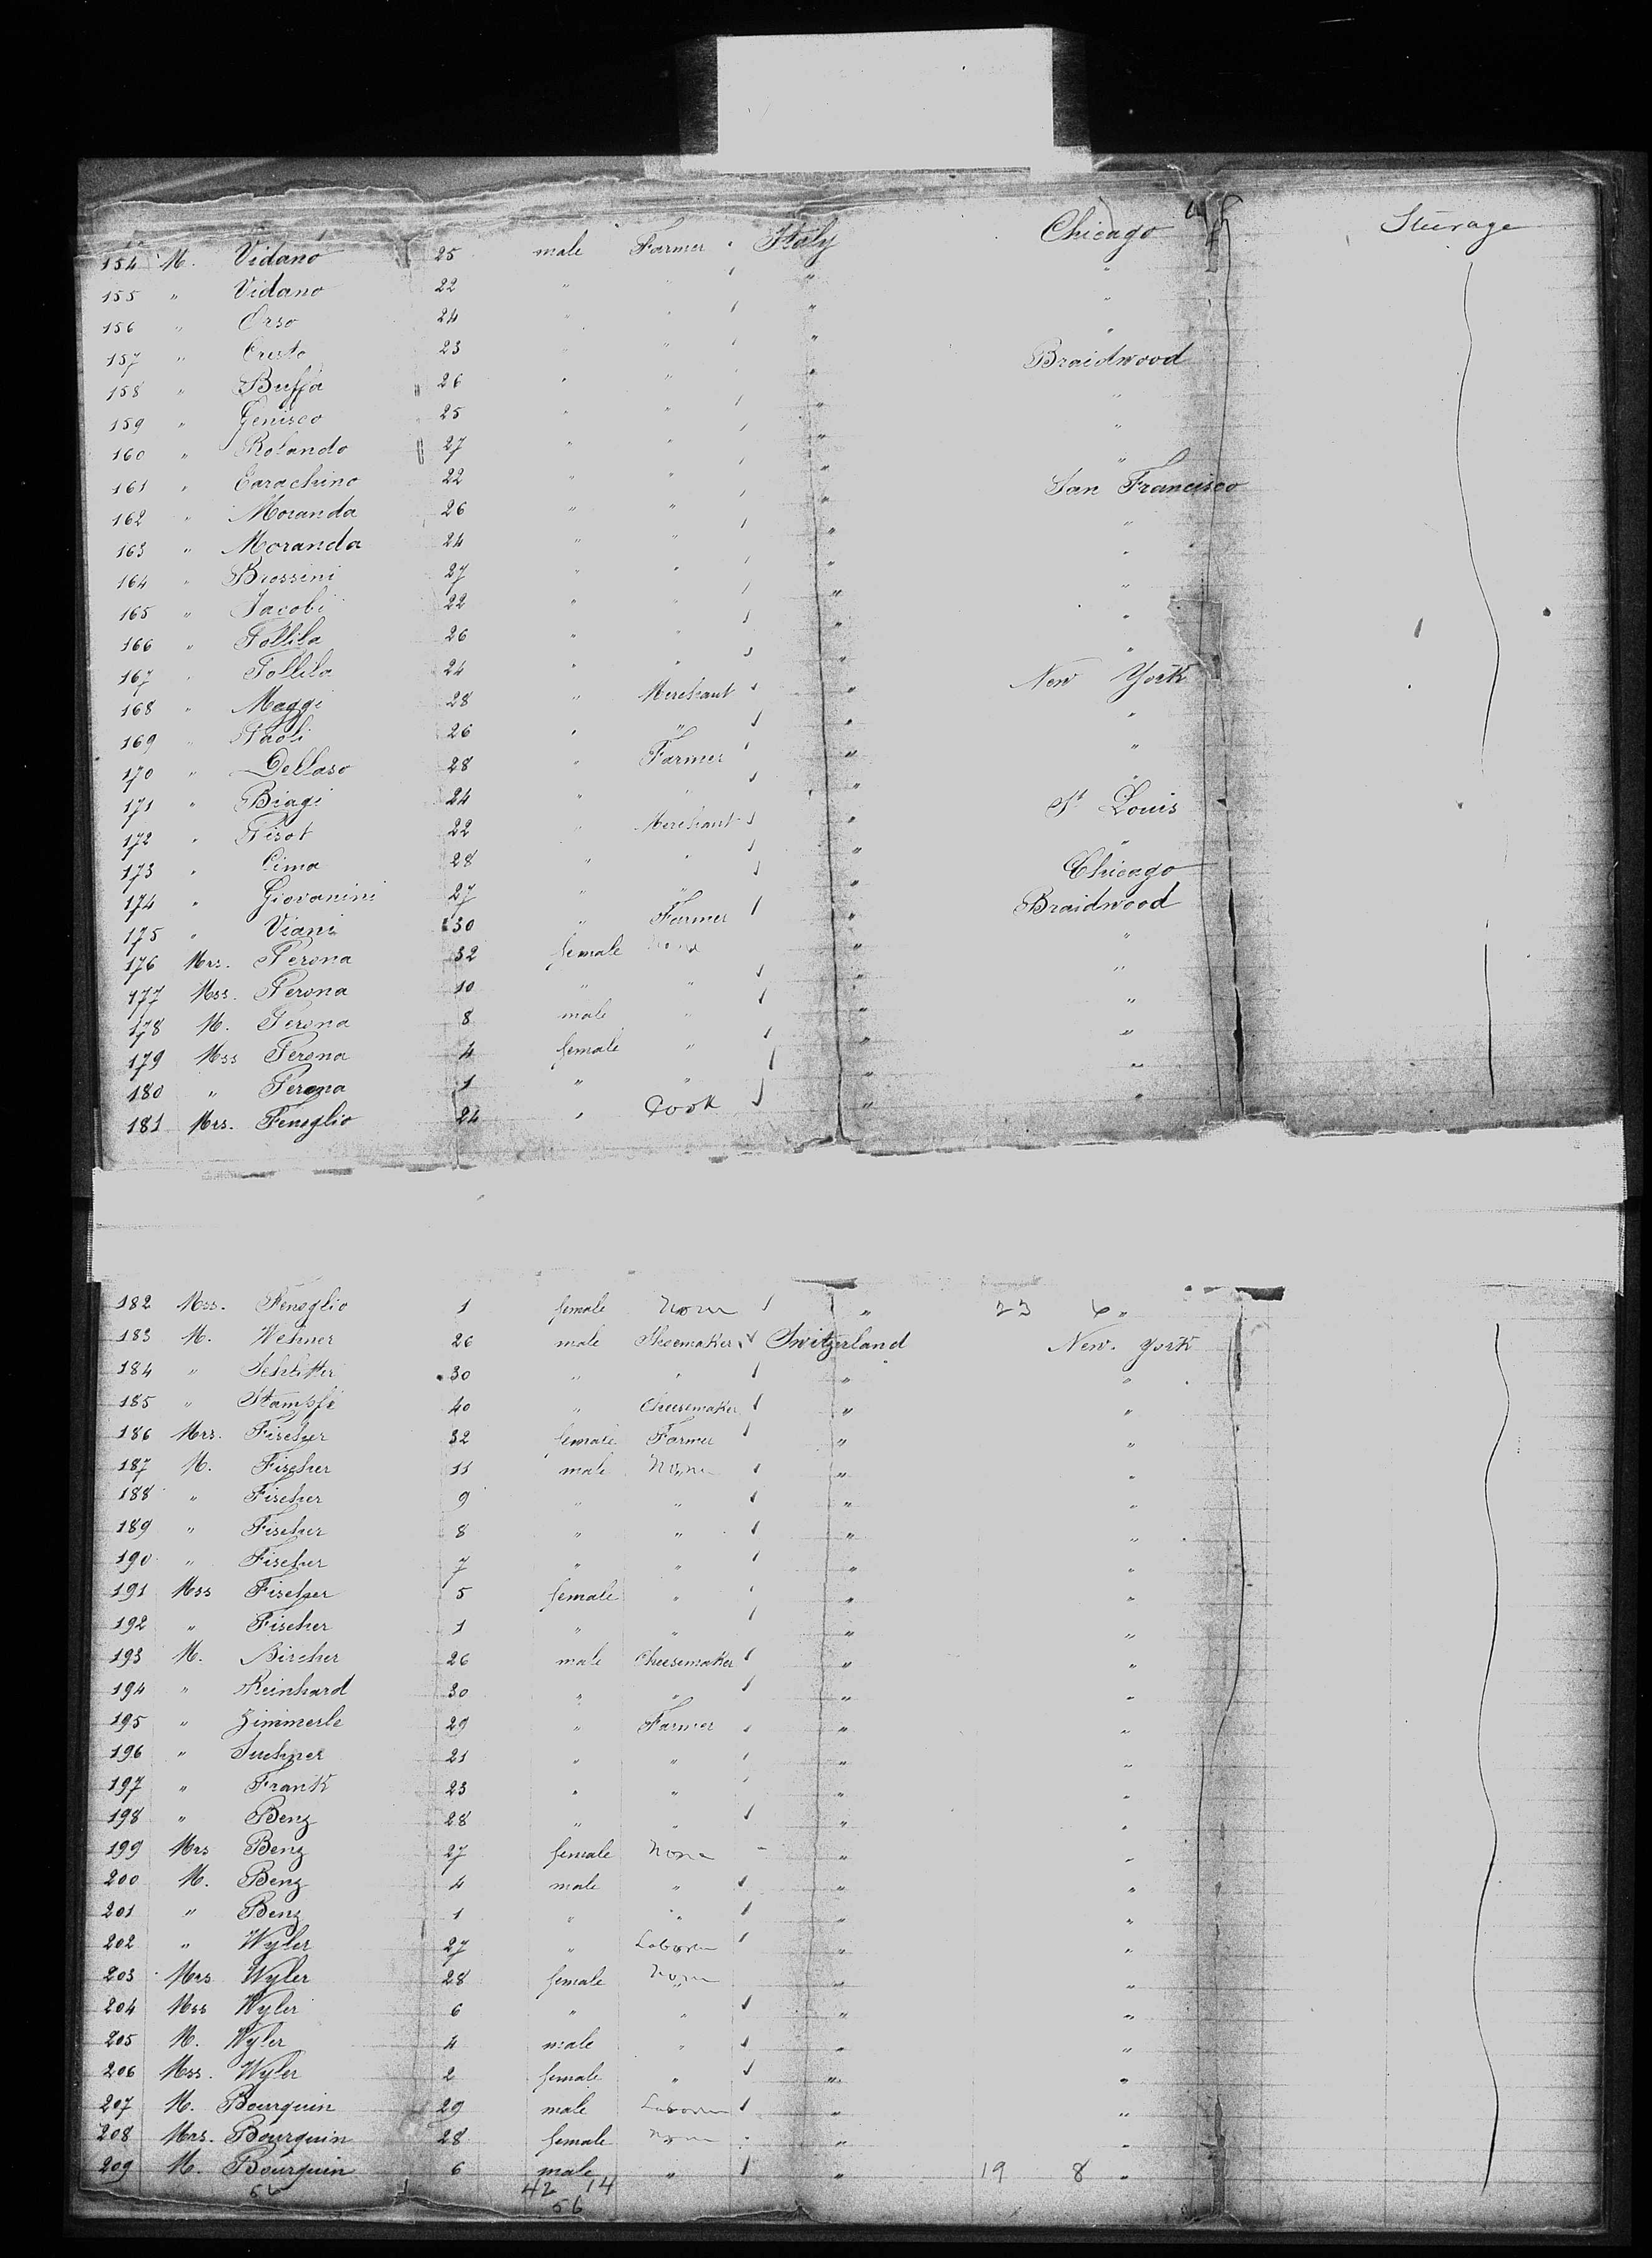 154 M. Vidano 25 male Farmer Italy Chicago Steerage
155 " Vidano 22 " " " "
156 " Orso 24 " " " "
157 " Cresto 23 " " " "
158 " Buffa 26 " " " Braidwood
159 " Genisco 25 " " " "
160 " Rolando 27 " " " "
161 " Carachino 22 " " " "
162 " Moranda 26 " " " San Francisco
163 " Moranda 24 " " " "
164 " Brossini 27 " " " "
165 " Jacobi 22 " " " "
166 " Tollila 26 " " " "
167 " Tollila 24 " " " "
168 " Maggi 28 " Merchant " New York
169 " Paoli 26 " " " "
170 " Dellaso 28 " Farmer " "
171 " Biagi 24 " " " "
172 " Pisot 22 " Merchant " St Louis
173 " Cima 28 " " " "
174 " Giovanini 27 " " " Chicago
175 " Viani 30 " Farmer " Braidwood
176 Mrs. Perona 32 female None " "
177 Mss. Perona 10 " " " "
178 M. Perona 8 male " " "
179 Mss Perona 4 female " " "
180 " Perona 1 " " " "
181 Mrs. Fenoglio 24 " Cook " "
182 Mss. Fenoglio 1 female None " 23 6 "
183 M. Wehner 26 male Shoemaker Switzerland New. York
184 " 30 " " " "
185 " Stampfli 40 " Cheesemaker " "
186 Mrs. Fischer 32 female Farmer " "
187 M. Fischer 11 male None " "
188 " Fischer 9 " " " "
189 " Fischer 8 " " " "
190 " Fischer 7 " " " "
191 Mss Fischer 5 female " " "
192 " Fischer 1 " " " "
193 M. Bircher 26 male Cheesemaker " "
194 " Reinhard 30 " " " "
195 " Zimmerle 29 " Farmer " "
196 " Suchner 21 " " " "
197 " Frank 23 " " " "
198 " Benz 28 " " " "
199 Mrs Benz 27 female None " "
200 M. Benz 4 male " " "
201 " Benz 1 " " " "
202 " Wyler 27 " Laborer " "
203 Mrs Wyler 28 female None " "
204 Mss Wyler 6 " " " "
205 M. Wyler 4 male " " "
206 Mss. Wyler 2 female " " "
207 M. Bourquin 29 male Laborer " "
208 Mrs. Bourquin 28 female None " "
209 M. Bourquin 6 male " " 19 8 "
56 42 14
56